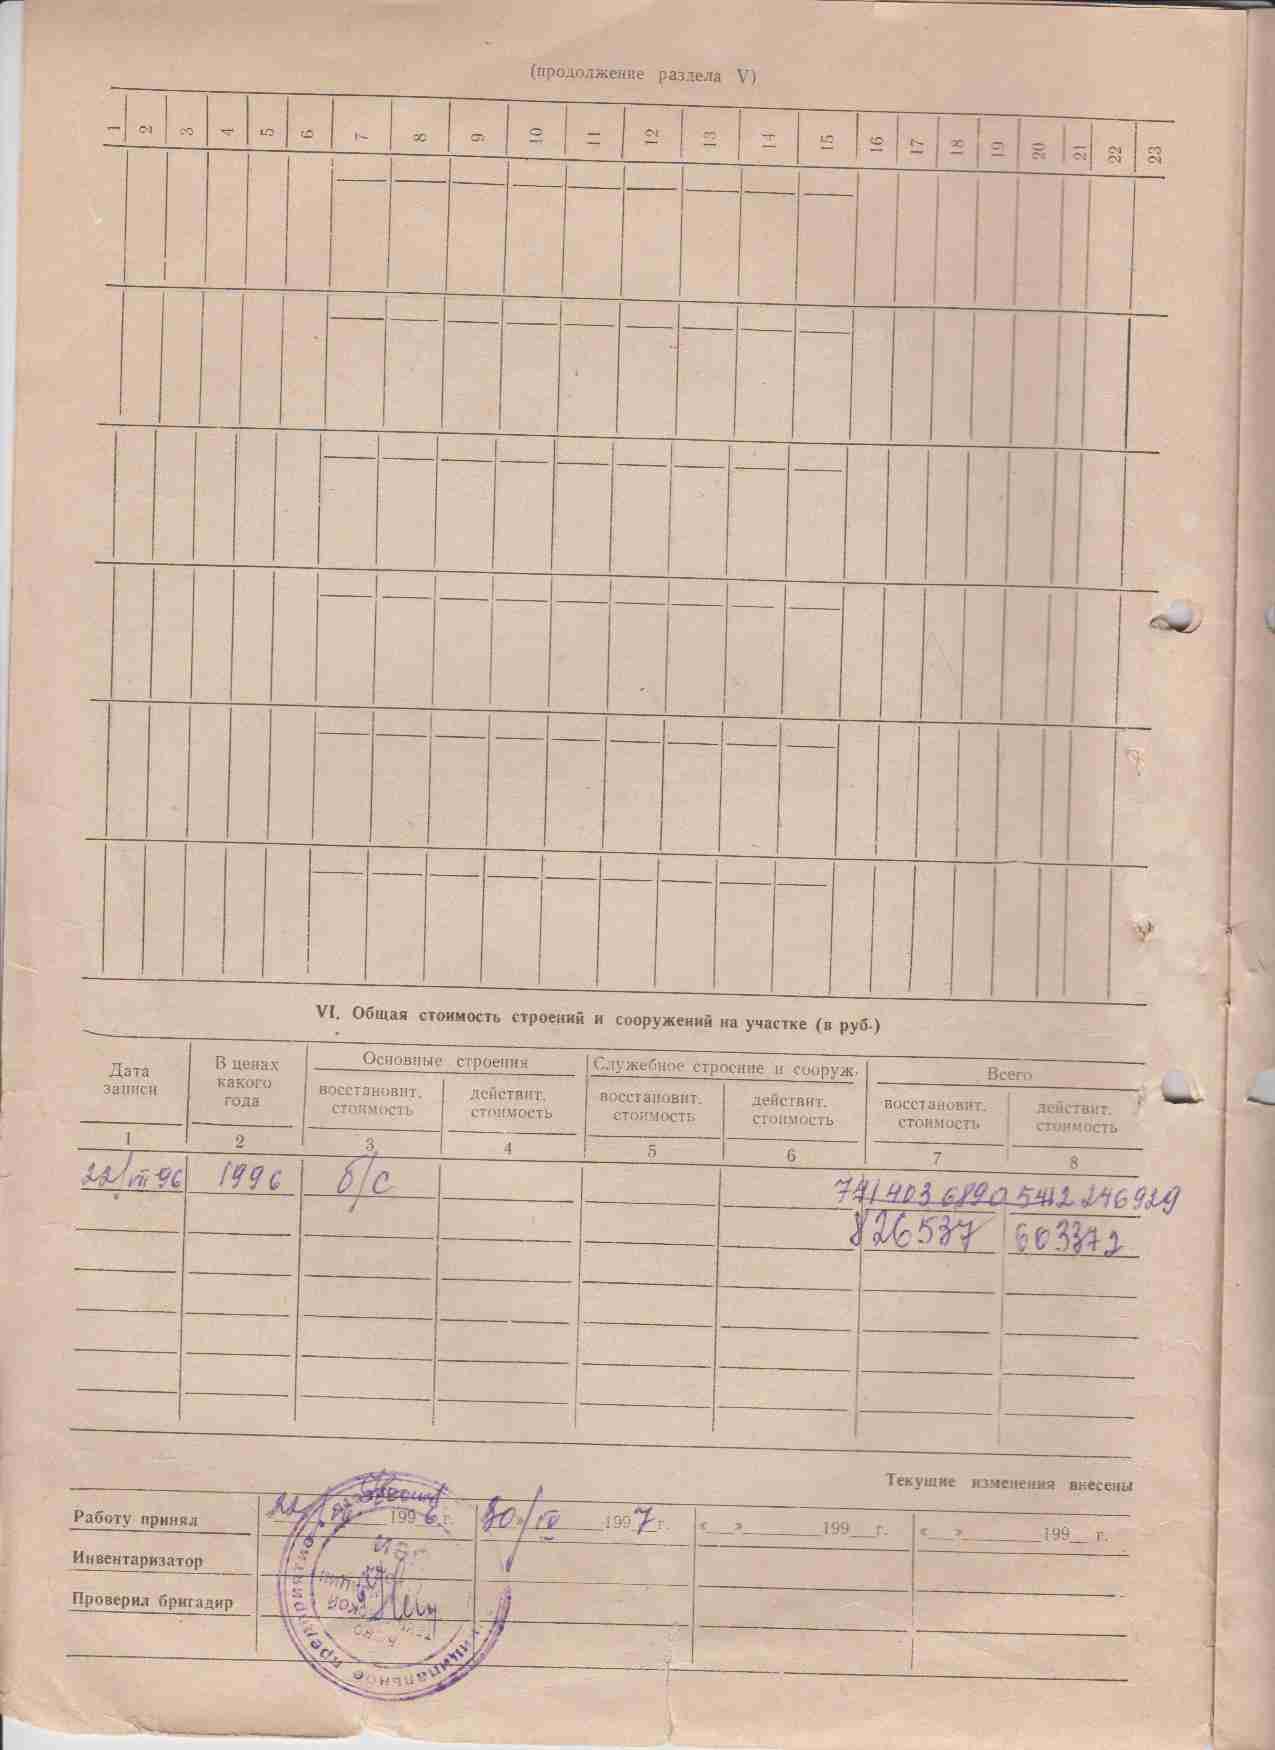 (продолжение раздела V)
1 2 3 4 5 6 7 8 9 10 11 12 13 14 15 16 17 18 19 20 21 22 23
VI. Общая стоимость строений и сооружений на участке (в руб.)
Дата записи
В ценах какого года
Основные строения
Служебное строение и сооруж.
Всего
восстановит. стоимость
действит. стоимость
восстановит. стоимость
действит. стоимость
восстановит. стоимость
действит. стоимость
1 2 3 4 5 6 7 8
22/VII 96 1996 б/с 741 403 689 0 5412 246 929
826537 603372
Текущие изменения внесены
Работу принял 22 1996 г. 30/IV 1997 г. «__»________199__г. «__»________199__ г.
Инвентаризатор
Проверил бригадир
Муниципальное предприятие
Бюро технической инвентаризации